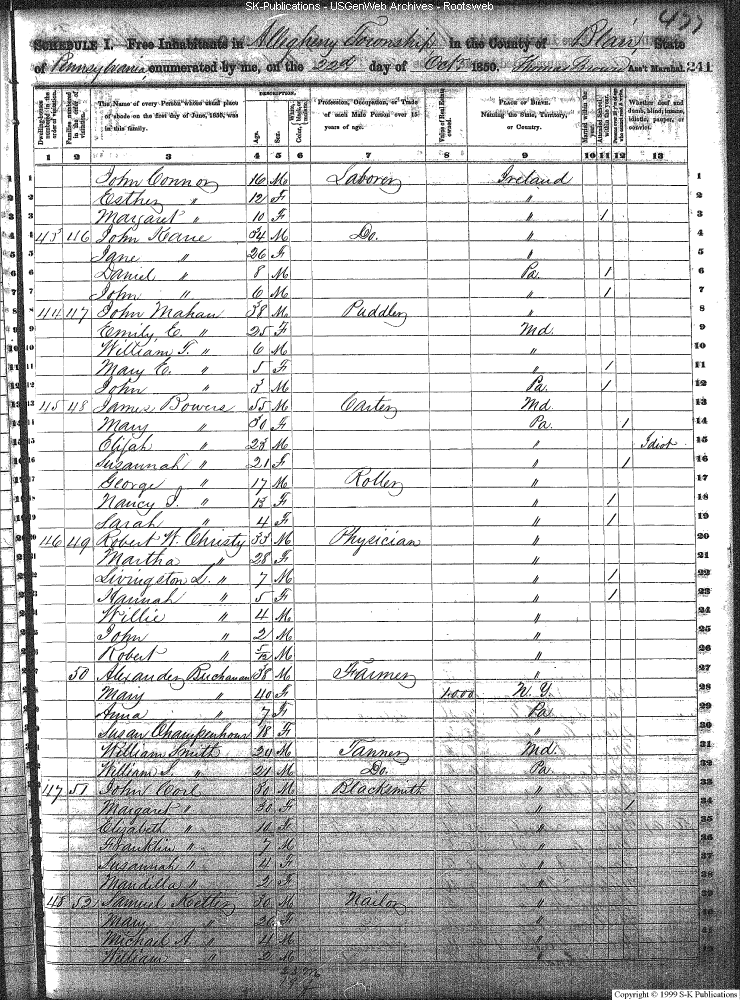 SK-Publications - USGenWeb Archives - Rootsweb
477
SCHEDULE I. Free Inhabitants in Allegheny Township in the County of Blair State
of Pennsylvania enumerated by me, on the 22d day of Octr 1850. Ass't Marshal. 241
DESCRIPTION.
Dwelling-houses numbered in the order of visitation. Families numbered in the order of visitation. The Name of every Person whose usual place of abode on the first day of June, 1850, was in this family. Age. Sex. Profession, Occupation, or Trade of each Male Person over 15 years of age. Value of Real Estate owned. PLACE OF BIRTH. Naming the State, Territory, or Country. Married within the year. Attended School within the year. Whether deaf and dumb, blind, insane, idiotic, pauper, or convict.
1 2 3 4 5 6 7 8 9 10 11 12 13
1 John Connor 16 M Laborer Ireland 1
2 Esther " 12 F " 2
3 Margaret " 10 F " 1 3
4 43 46 John Kane 34 M Do. " 4
5 Jane " 26 F " 5
6 Daniel " 8 M Pa. 1 6
7 John " 6 M " 1 7
8 44 47 John Mahan 38 M Puddler " 8
9 Emily E. " 25 F Md. 9
10 William T. " 6 M " 10
11 Mary E. " 5 F " 1 11
12 John " 3 M Pa. 1 12
13 45 48 James Bowers 55 M Carter Md. 13
14 Mary " 50 F Pa. 1 14
15 Elijah " 23 M " Idiot 15
16 Susannah " 21 F " 1 16
17 George " 17 M Roller " 17
18 Nancy J. " 13 F " 1 18
19 Sarah " 4 F " 1 19
20 46 49 Robert W. Christy 33 M Physician " 20
21 Martha " 28 F " 21
22 Livingston L. " 7 M " 1 22
23 Hannah " 5 F " 1 23
24 Willie " 4 M " 24
25 John " 2 M " 25
26 Robert " 5/12 M " 26
27 50 Alexander Buchanan 38 M Farmer " 27
28 Mary " 40 F 1000 N. Y. 28
29 Anna " 7 F Pa. 29
30 Susan 18 F " 30
31 William Smith 24 M Tanner Md. 31
32 William S. " 21 M Do. Pa. 32
33 47 51 John Corl 30 M Blacksmith " 33
34 Margaret " 30 F " 1 34
35 Elizabeth " 10 F " 35
36 Franklin " 7 M " 36
37 Susannah " 4 F " 37
38 Mandilla " 2 F " 38
39 48 52 Samuel 30 M Nailor " 39
40 Mary " 26 F " 40
41 Michael A. " 4 M " 41
42 William " 2 M " 42
Copyright © 1999 S-K Publications